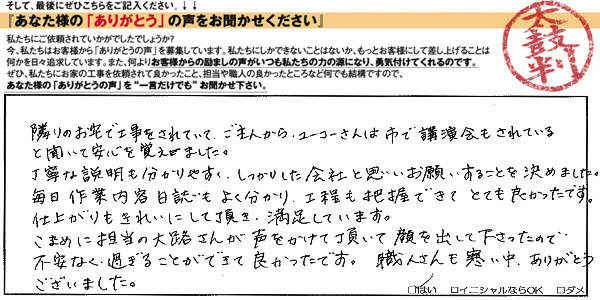 そして、最後にぜひこちらをご記入ください。↓↓
『あなた様の「ありがとう」の声をお聞かせください』
私たちにご依頼されていかがでしたでしょうか?
今、私たちはお客様から「ありがとうの声」を募集しています。私たちにしかできないことはないか、もっとお客様にして差し上げることは
何かを日々追求しています。また、何よりお客様からの励ましの声がいつも私たちの力の源になり、勇気付けてくれるのです。
ぜひ、私たちにお家の工事を依頼されて良かったこと、担当や職人の良かったところなど何でも結構ですので、
あなた様の「ありがとうの声」を“一言だけでも”お聞かせ下さい。
太鼓判
隣りのお宅で工事をされていて、ご主人から、ユーコーさんは市で講演会もされている
と聞いて安心を覚えました。
丁寧な説明も分かりやすく、しっかりした会社と思いお願いすることを決めました。
毎日作業内容日誌もよく分かり、工程も把握できてとても良かったです。
仕上がりもきれいにして頂き、満足しています。
こまめに担当の大路さんが声をかけて頂いて顔を出して下さったので
不安なく過ぎることができて良かったです。 職人さんも寒い中、ありがとう
ございました。
□はい □イニシャルならOK □ダメ